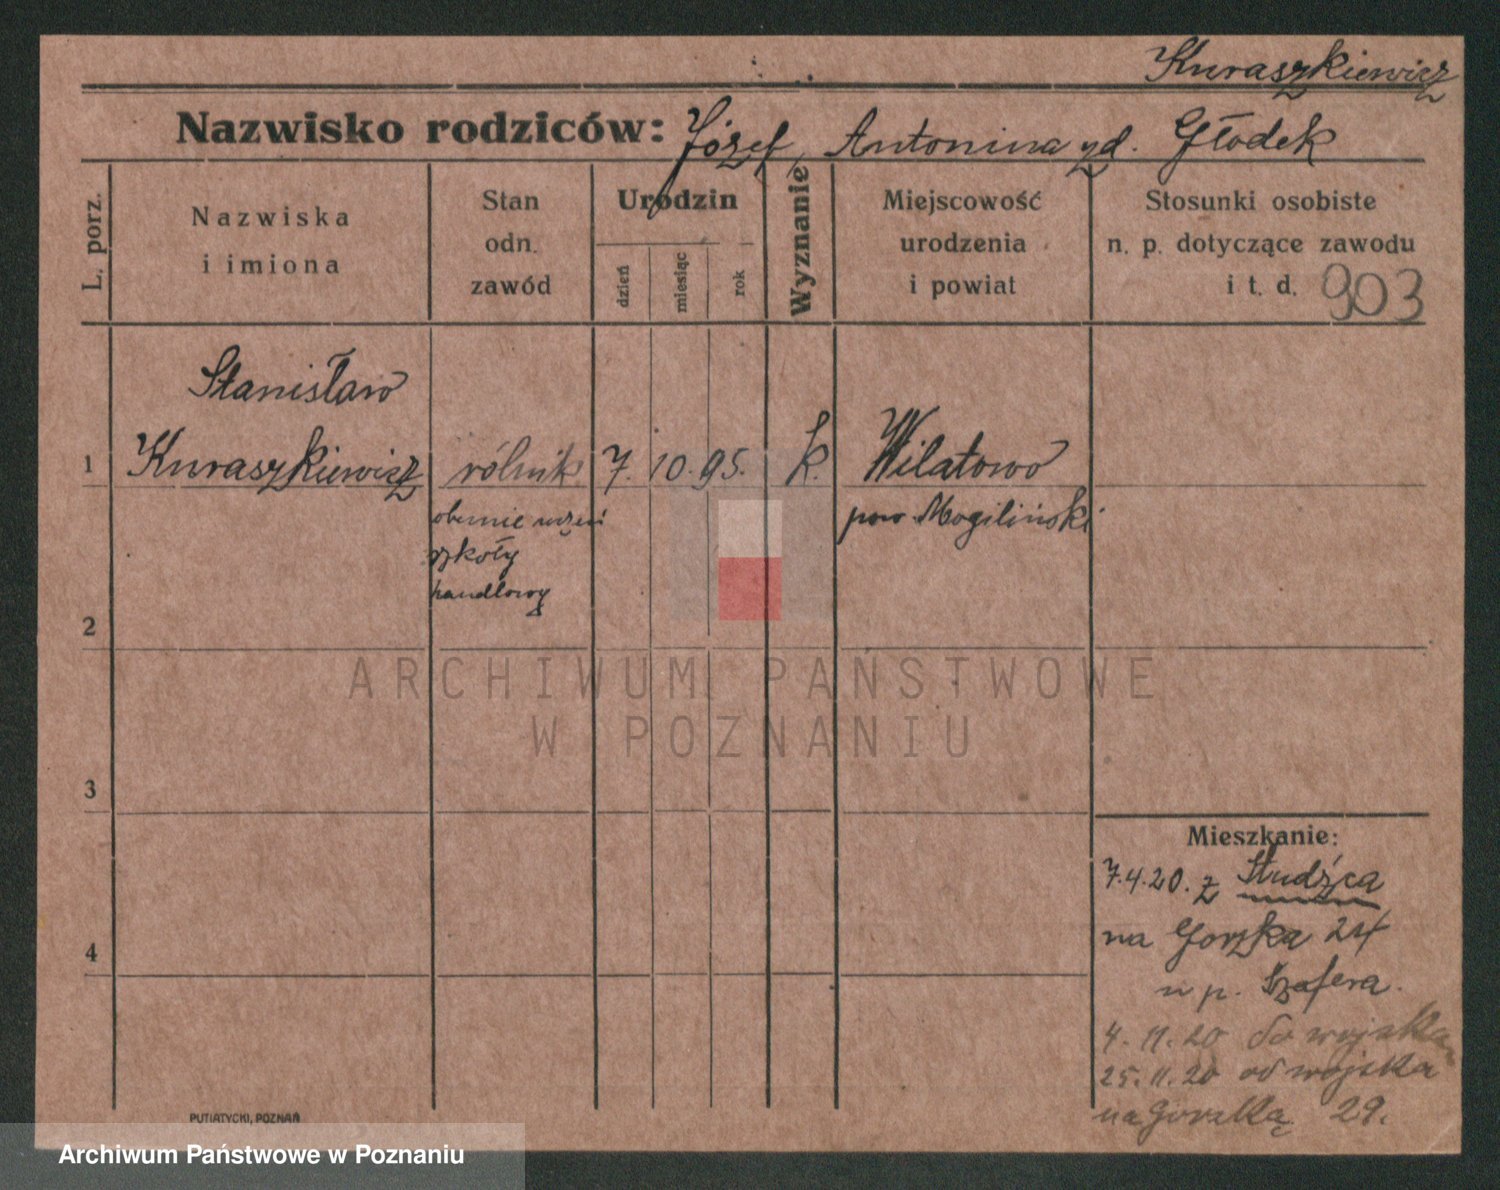 Kuraszkiewicz
Nazwisko rodziców: Józef, Antonina zd. Głodek
L. porz.
Nazwiska
i imiona
Stan
odn.
zawód
Urodzin
dzień
miesiąc
rok
Wyznanie
Miejscowość
urodzenia
i powiat
Stosunki osobiste
n. p. dotyczące zawodu
i t. d. 903
Stanisław
1 Kuraszkiewicz rólnik 7. 10. 95. k. Wilatowo
obecnie uczeń pow. Mogiliński
szkoły
handlowej
2
ARCHIWUM PAŃSTWOWE
W POZNANIU
3
Mieszkanie:
7.4.20. z Studźca
na Gorzka 24
u p. Szafera.
4
4. 11. 20 do wojska
25. 11. 20 od wojska
na Gorzką 29.
PUTIATYCKI, POZNAŃ
Archiwum Państwowe w Poznaniu